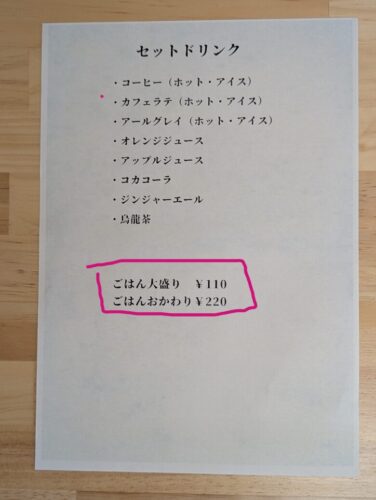 セットドリンク
・コーヒー（ホット・アイス）
・カフェラテ（ホット・アイス）
・アールグレイ（ホット・アイス）
・オレンジジュース
・アップルジュース
・コカコーラ
・ジンジャーエール
・烏龍茶
ごはん大盛り　￥110
ごはんおかわり￥220